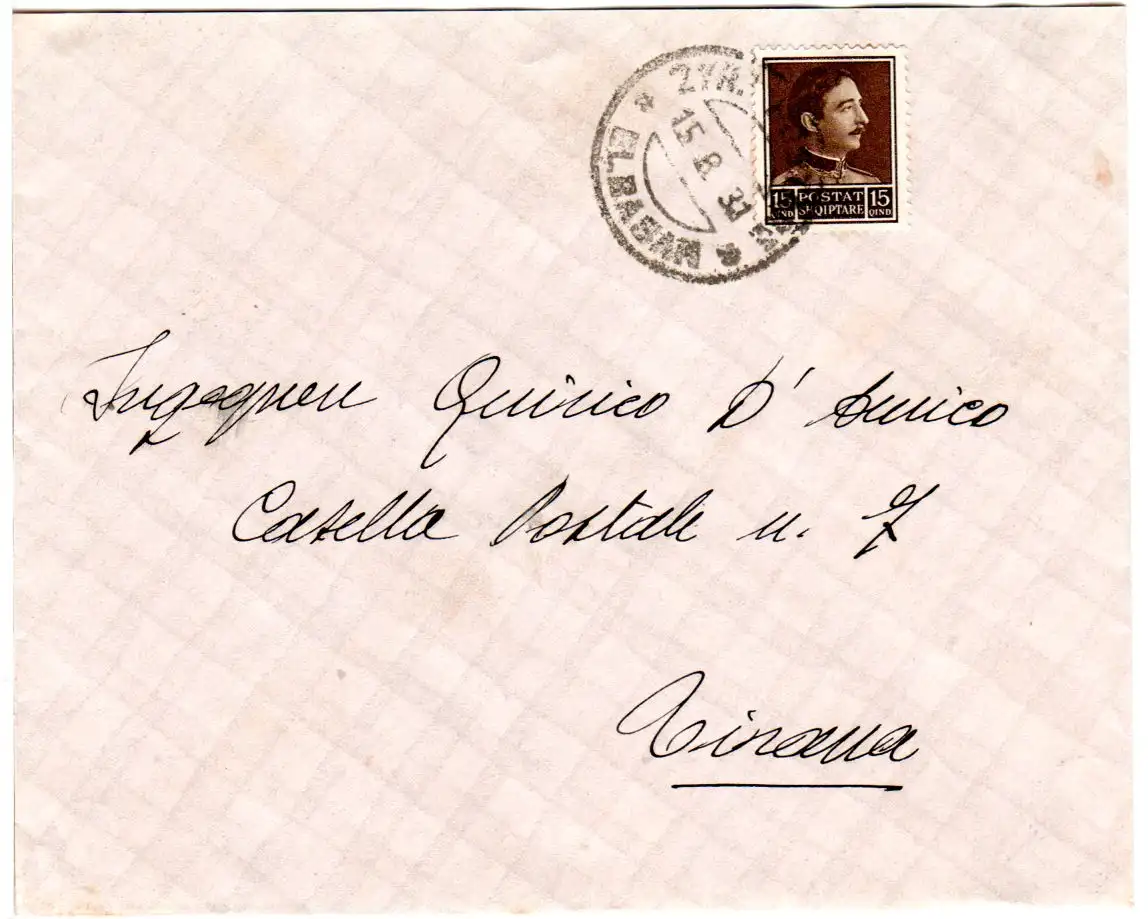 ZYR.
ELBASAN
15.8.37
15 POSTAT 15
QIND SHQIPTARE QIND
Ingegnere Quirico D' Amico
Casella Postale n. 7
Tirana